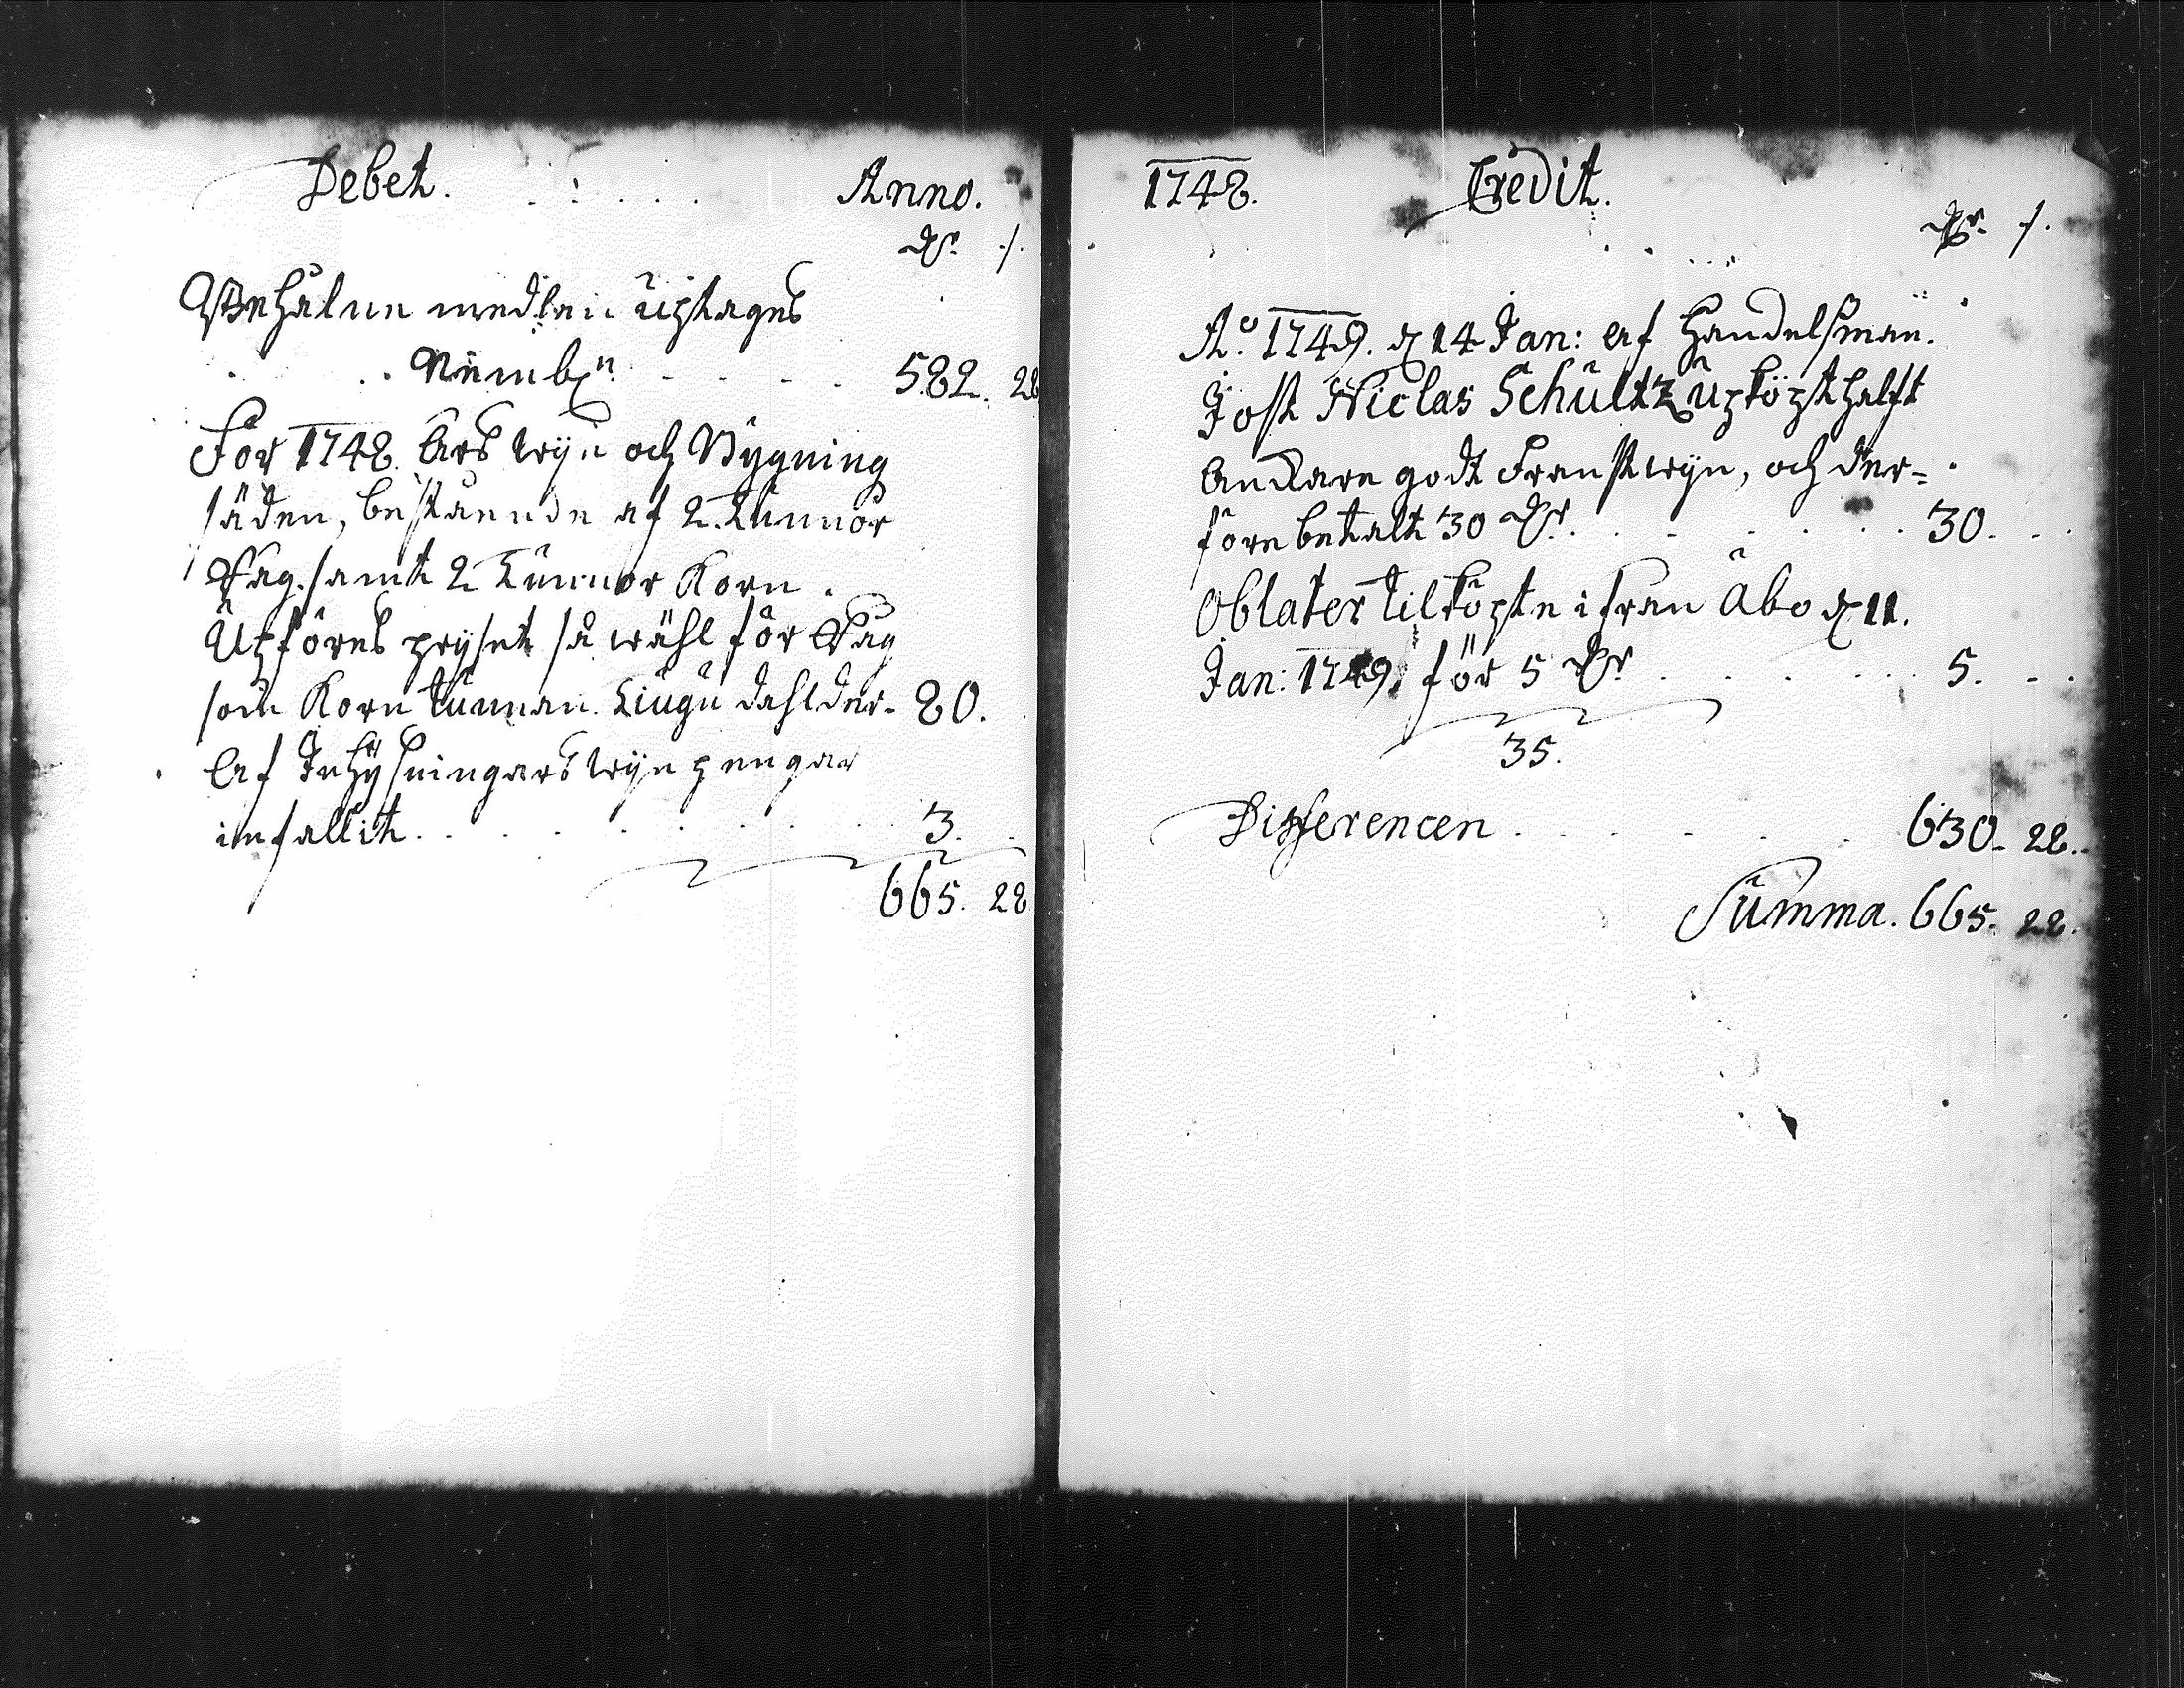 Debet. Anno.
dr. /.
Behålne medlen uptages
582. 28
För 1748. Års wijn och Bygning
säden, bestående af 2. Tunnor
Råg. samt 2 Tunnor Korn.
Upföres pryset så wähl för Råg
som Korn tunnan. Tiugu dahlder- 80.
Af Inhysningars wijn pengar
infallit. 3.
665. 28
1748. Credit.
dr. /.
Ao. 1749. d 14 Jan: af Handelsman.
Jost Niclas Schultz upköpt halft
Anckare godt Franskwijn, och der=
före betalt 30 dr. 30.
Oblater tilköpte ifrån Åbo d 11.
Jan: 1749. för 5 dr 5.
35.
Differencen 630. 28.
Summa. 665. 28.